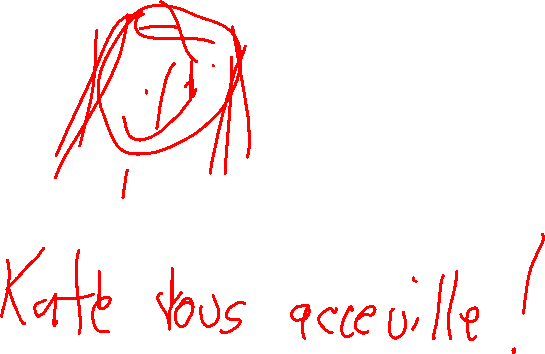 Kate vous acceuille !